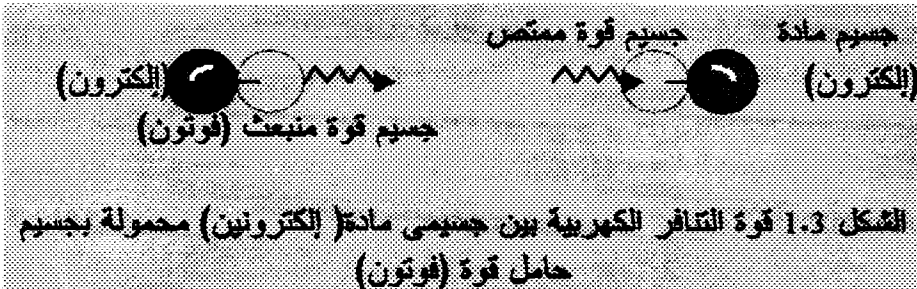 جسيم مادة
جسيم قوة ممتص
(إلكترون)
(إلكترون)
جسيم قوة منبعث (فوتون)
الشكل 1.3 قوة التنافر الكهربية بين جسيمى مادة( إلكترونين) محمولة بجسيم
حامل قوة (فوتون)